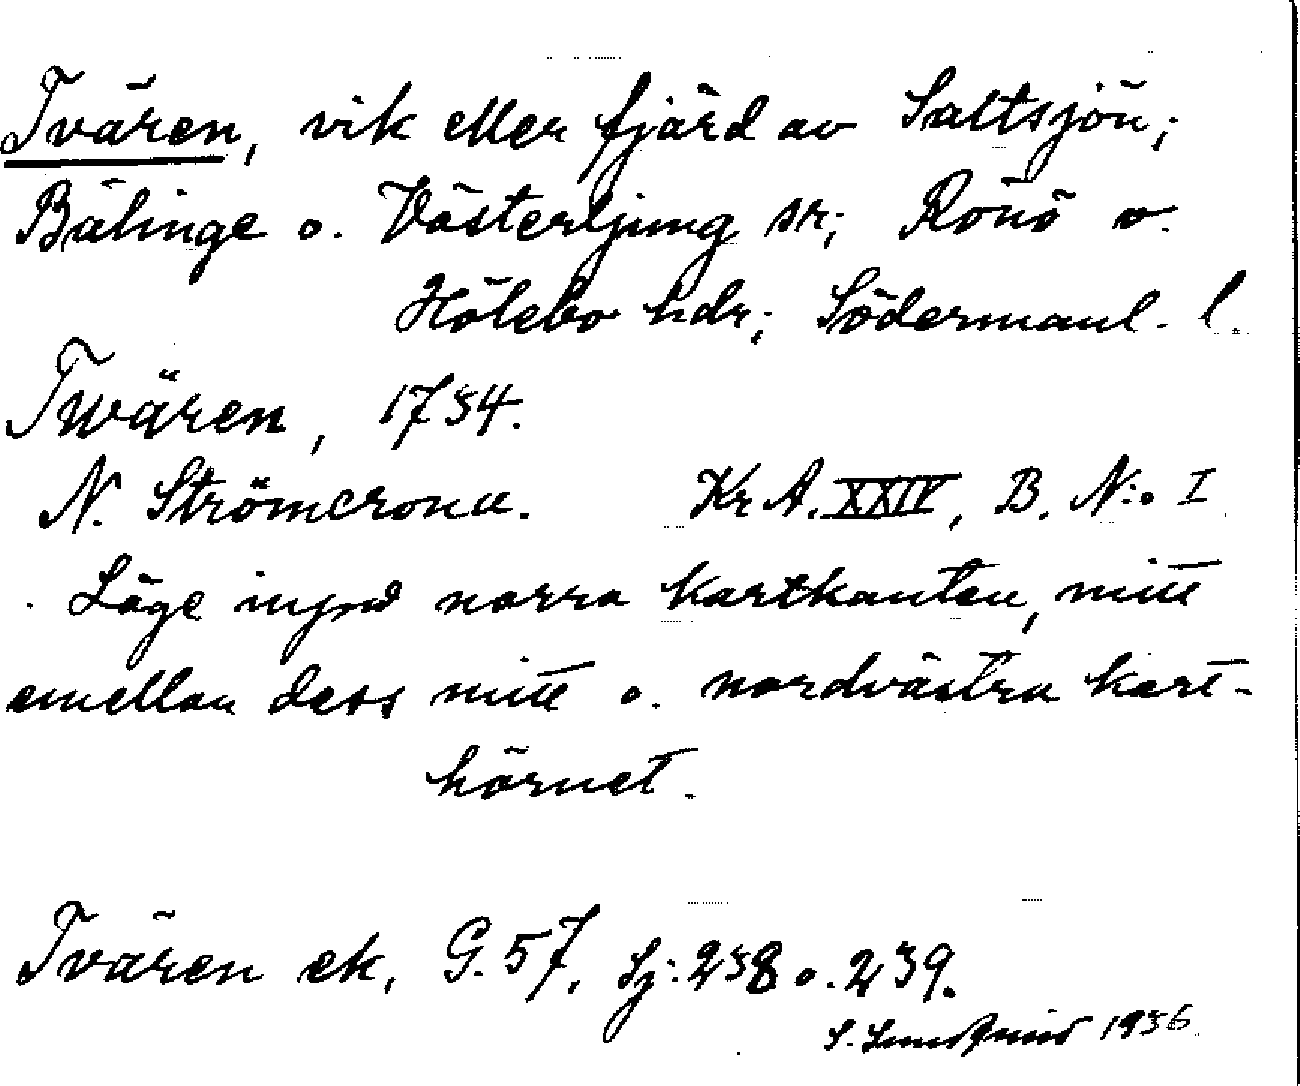 Tvären, vik eller fjärd av Saltsjön;
Bälinge o. Västerljung sr; Rönö o.
Hölebo hdr; Södermanl. l.
Twären, 1734.
N. Strömcrona. Kr A. XXIV, B. N:o I
Läge invid norra kartkanten, mitt
emellan dess mitt o. nordvästra kart-
hörnet.
Tvären ek. G. 57, Sj: 238 o. 239.
S. 1936